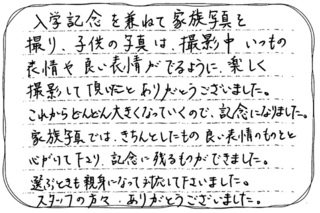 入学記念を兼ねて家族写真を
撮り、子供の写真は、撮影中いつもの
表情や良い表情がでるように、楽しく
撮影して頂いたと ありがとうございました。
これからどんどん大きくなっていくので、記念になりました。
家族写真では、きちんとしたもの 良い表情のものと
心がけて下さり、記念に残るものができました。
選ぶときも親身になって対応して下さいました。
スタッフの方々、ありがとうございました。